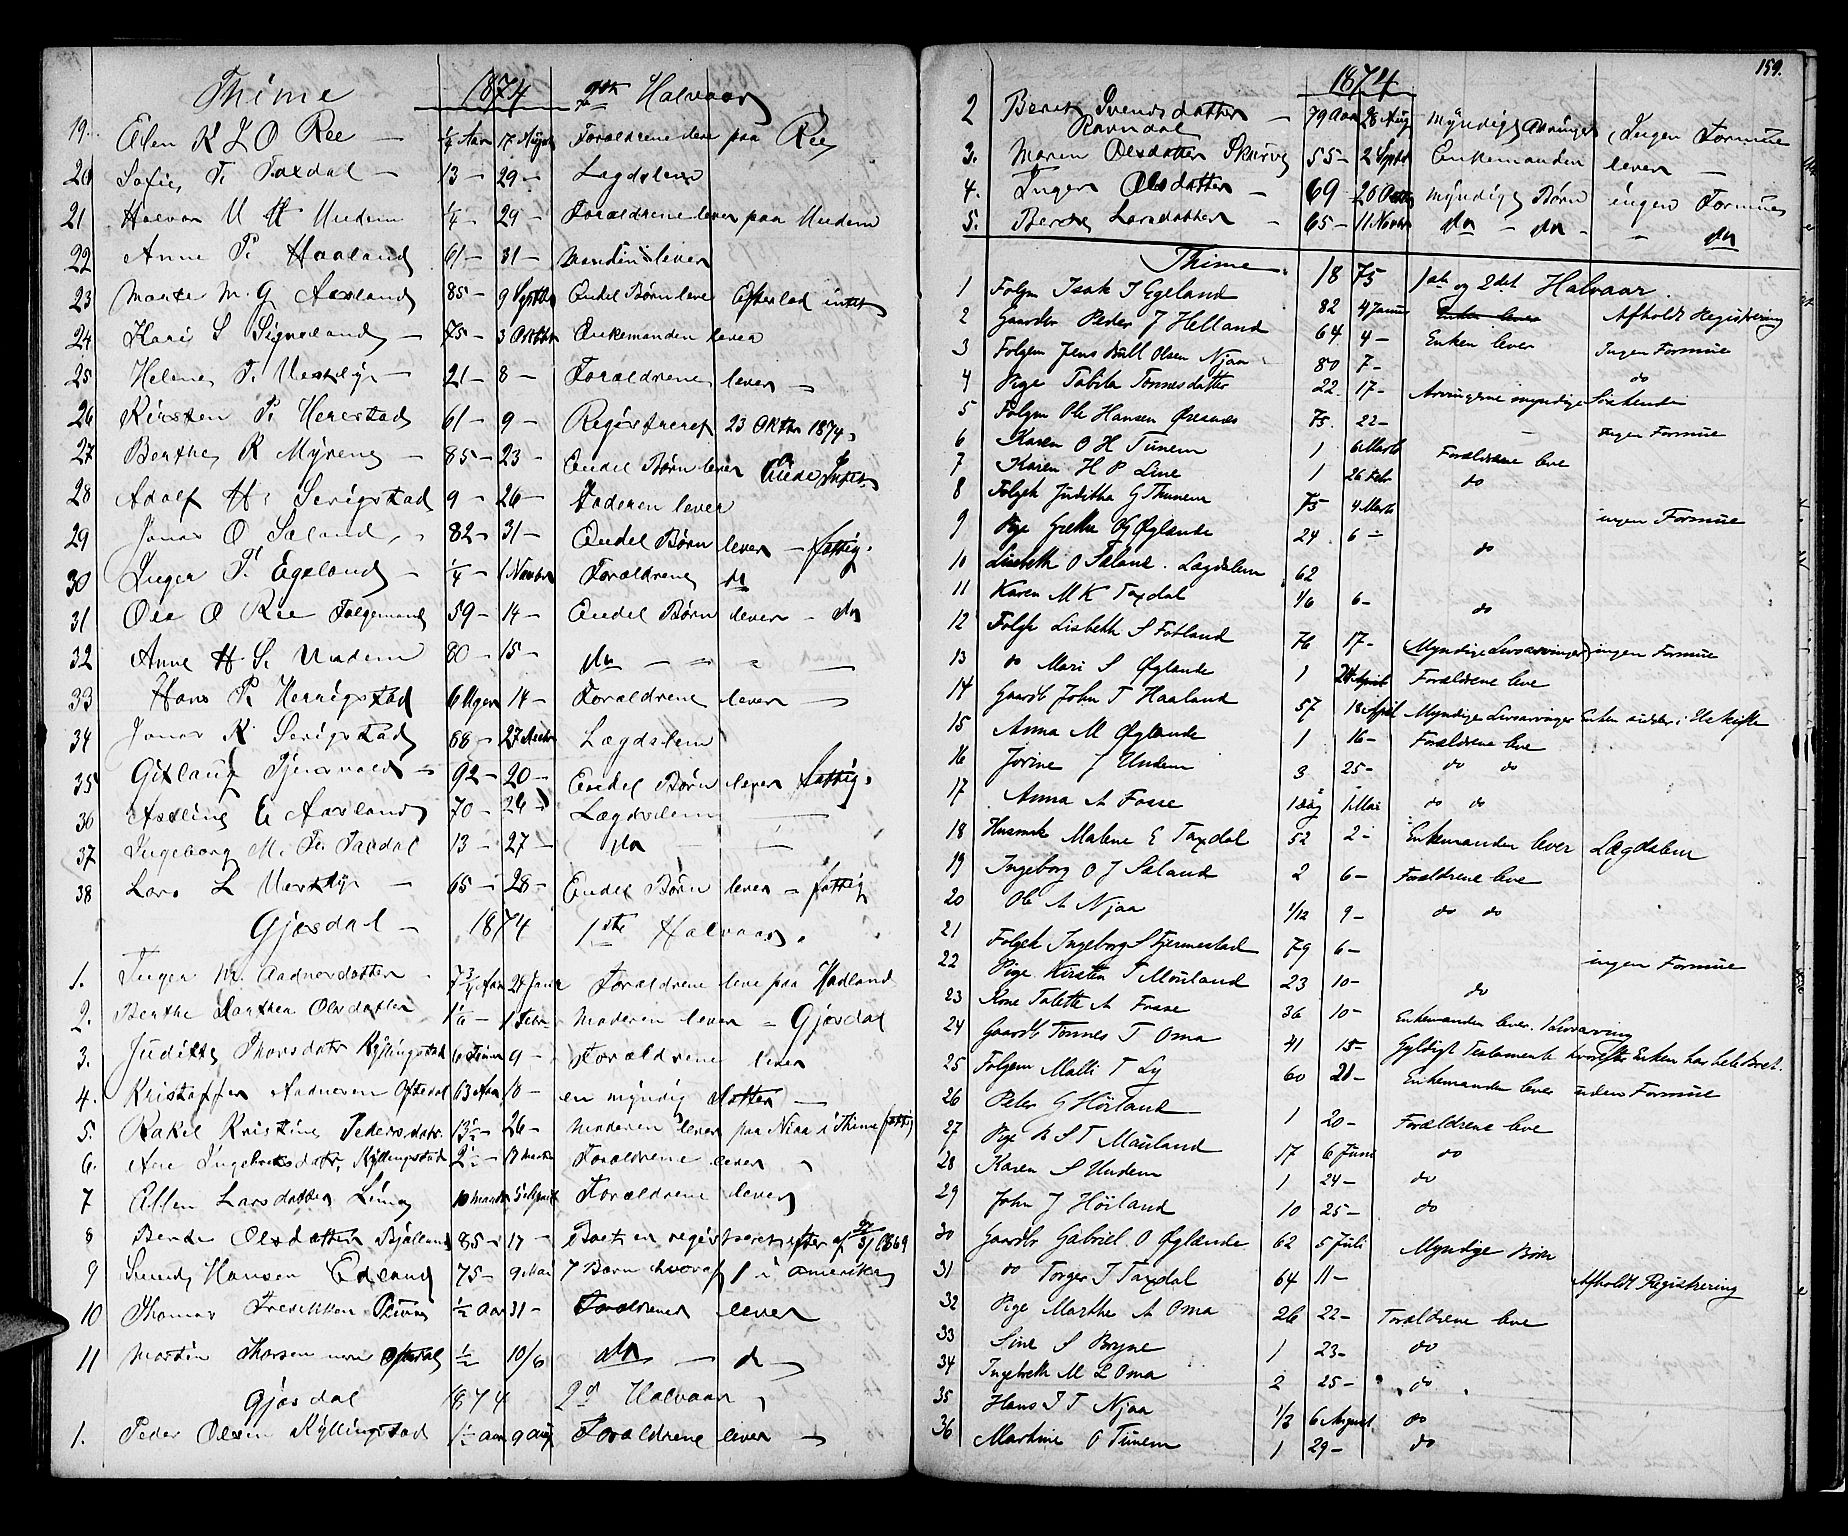 Thime 1874 2den Halvaar
19. Elen K Z O Ree — ¼ Aar 17 Augst Forældrene leve paa Ree
20 Sofie T. Taxdal — 13 — 29 — Lægdslem
21 Halvor U H Undem ¼ — 29 — Forældrene lever paa Undem
22 Anne P. Haaland 61 — 31 — Manden lever
23 Marte M. G Aasland 85 — 9 Septbr Endel Børn leve Efterlod intet
24 Kari S Signeland — 75 — 3 Oktbr Enkemanden lever
25 Helene T. Vestly — 21 — 8 — Forældrene lever —
26 Kirsten P. Herestad 61 — 9 — Registreret 23 Oktbr 1874.
27 Berthe K Myrene — 85 — 23 — Endel Børn lever Eiede Intet
28 Adolf H. Serigstad 9 — 26 — Faderen lever
29 Jonas O Sæland 82 — 31 — Endel Børn lever — fattig.
30 Inger T. Egeland — ¼ — 1 Novbr Forældrene do
31 Ole O Ree Folgemand 59 — 14 — Endel Børn lever — do
32 Anne H S. Undem 80 — 15 — do — — —
33 Hans P. Herrigstad 6 Uger 14 — Forældrene lever —
34 Jonas K Serigstad 68 — 27 Lægdslem
35 Gitlaug Tjensvold — 92 — 20 — Endel Børn lever fattig.
36 Asling E Aasland 70 — 26 — Lægdslem —
37 Ingeborg M. T. Taxdal 13 — 27 — do — —
38 Lars L Vestly — 65 — 28 — Endel Børn lever — fattig
Gjesdal — 1874 1ste Halvaar.
1. Inger M. Aadnesdatter — 7¾ Aar 28 Janr Forældrene leve paa Hadland
2. Berthe Olsdatter 1 Febr Moderen lever — Gjesdal
3. Judithe Thorsdatr Kyllingstad 6 Timer 9 — Forældrene lever
4. Kristoffer Aadnesen Oftedal 63 Aar 10 — en myndig datter —
5. Rakel Kristine Pedersdatr. 13½ 26 — Moderen lever paa Njaa i Thime fattig
6. Ane Ingebretsdatr, Kyllingstad 2½ — Forældrene lever
7 Ellen Larsdatter Limo 10 5 April Forældrene lever
8 Berte Olsdatter Bjelland 85 — 17 — Boet er registreret
9 Svend Hansen Edland 75 — 9 Mai 7 Børn hvoraf 1 i Amerika
10 Thomas ½ Aar 31 — Forældrene lever
11 Martin Thorsen Oftedal ½ 10/6 do — do
Gjesdal 1874 2d Halvaar
1. Peder Olsen Kyllingstad 1½ Aar 9 Aug Forældrene lever —
159.
1874
2 Berit Svendsdatter Ravndal — 79 Aar 28 Aug Myndige Arvinger, Ingen Formue
3. Maren Olsdatter Skurve 55 — 2 Septr Enkemanden lever —
4. Inger Olsdatter — 69 26 Octbr Myndige Børn ingen Formue
5. Berte Larsdatter — 65 — 11 Novbr do — do — — do
Thime 1875 1ste og 2det Halvaar.
1 Folgm Isak T Egeland 82 4 Januar Enken lever Afholdt Registrering
2 Gaardbr Peder J Helland 64 4 — Enken lever Ingen Formue
3 Folgem Jens Bull Olsen Njaa 80 7 — do
4 Pige Tabita Tønnesdatter 22 17 — Arvingerne myndige Søskende
5 Folgm Ole Hansen Øresnes 75. 22 — — Ingen Formue
6 Karen O H Tunem 1 6 Marts Forældrene leve
7 Karen H P Line 1 26 Febr do
8 Folgek Juditha G Thunem 75 4 Marts ingen Formue
9 Pige Grethe O Øglænde 24 6 — do
10 Lisbeth O Sæland. Lægdslem 62
11 Karen M K Taxdal 1/6 6 — do
12 Folgk Lisbeth S Fotland 76 17 — Myndige Livsarvinger ingen Formue
13 do Mari S Øglænde 1 Forældrene leve
14 Gaardb John T Haaland 57 18 April Myndige Livsarvinger Enken sidder i Uskifte
15 Anna M Øglænde 1 16 — Forældrene leve
16 Jorine J Undem 3 25 — do do
17 Anna A Fosse 1 Dag 1 Mai do do
18 Husmk Malene E Taxdal 52 2 — Enkemanden lever Lægdslem
19 Ingeborg O J Sæland 2 6 — Forældrene leve
20 Ole A Njaa 1/12 9 — do do
21 Folgek Ingeborg S Tjermestad 79 6 — ingen Formue
22 Pige Kirsten T Mouland 23 10 — do
23 Kone Talette A Fosse 36 10 — Enkemanden lever. 1 Livsarving
24 Gaardb Tønnes T Oma 41 15 — Gyldigt Testamente hvorefter Enken har hele Boet.
25 Folgem Malli T Ly 60 21 — Enkemanden lever uden Formue
26 Peter G Høiland 1 20 — Forældrene leve
27 Pige K S T Mauland 17 6 Juni do
28 Karen S Undem 1 24 — do
29 John J Høiland 10 25 — do
30 Gaardbr Gabriel O Øglænde 62 5 Juli Myndige Børn
31 do Torger T Taxdal 64 11 — Afholdt Registrering
32 Pige Marthe A Oma 26 22 — Forældrene leve
33 Sine S Bryne 1 23 — do
34 Ingebreth M L Oma 2 25 — do
35 Hans T T Njaa 1/3 6 August do
36 Martine O Tunem 1 29 — do